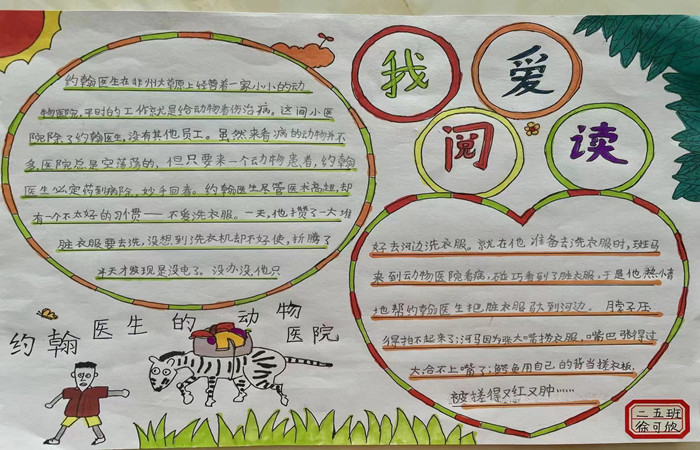 我爱
阅读
约翰医生在非州大草原上经营着一家小小的动
物医院,平时的工作就是给动物看伤治病。这间小医
院除了约翰医生,没有其他员工。虽然来看病的动物并不
多,医院总是空荡荡的,但只要来一个动物患者,约翰
医生必定药到病除,妙手回春。约翰医生尽管医术高超,却
有一个不太好的习惯——不爱洗衣服。一天,他攒了一大堆
脏衣服要去洗,没想到洗衣机却不好使,折腾了
半天才发现是没电了。没办没,他只
好去河边洗衣服。就在他准备去洗衣服时,斑马
来到动物医院看病,碰巧看到了脏衣服,于是他热情
地帮约翰医生把脏衣服驮到河边。脖子压
得抬不起来了;河马因为张大嘴捞衣服,嘴巴张得过
大合不上嘴了;鳄鱼用自己的背当搓衣板,
被搓得又红又肿……
约翰医生的动物
医院
二五班
徐可欣